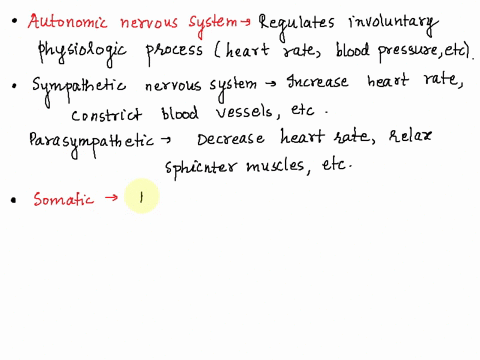 • Autonomic nervous system → Regulates involuntary
physiologic process (heart rate, blood pressure, etc).
• Sympathetic nervous system → Increase heart rate,
constrict blood vessels, etc.
Parasympathetic → Decrease heart rate, relax
sphicnter muscles, etc.
• Somatic → I